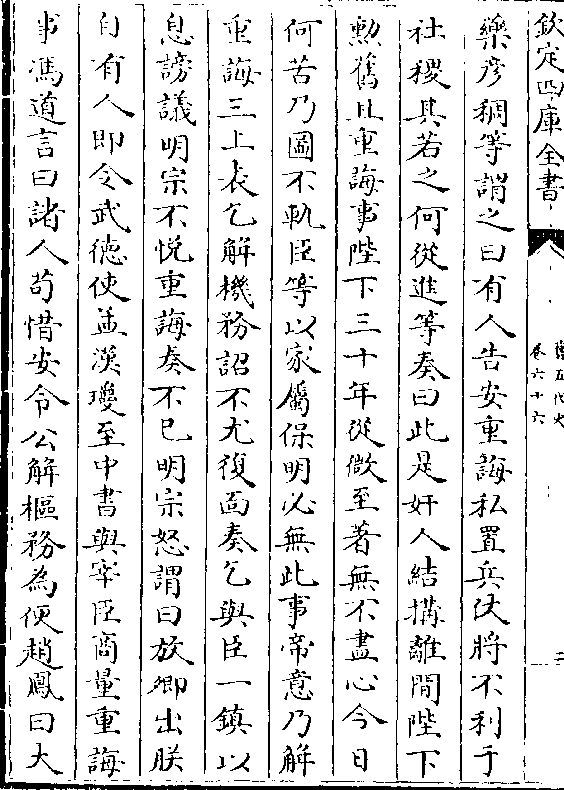 欽定四庫全書
舊五代史
卷六十六
二
藥彥稠等謂之曰有人告安重誨私置兵仗將不利于
社稷其若之何從進等奏曰此是奸人結搆離間陛下
勲舊且重誨事陛下三十年從微至著無不盡心今日
何苦乃圖不軌臣等以家屬保明必無此事帝意乃解
重誨三上表乞解機務詔不允復面奏乞與臣一鎮以
息謗議明宗不悦重誨奏不已明宗怒謂曰放卿出朕
自有人即令武德使孟漢瓊至中書與宰臣商量重誨
事馮道言曰諸人茍惜安令公解樞務為便趙鳳曰大